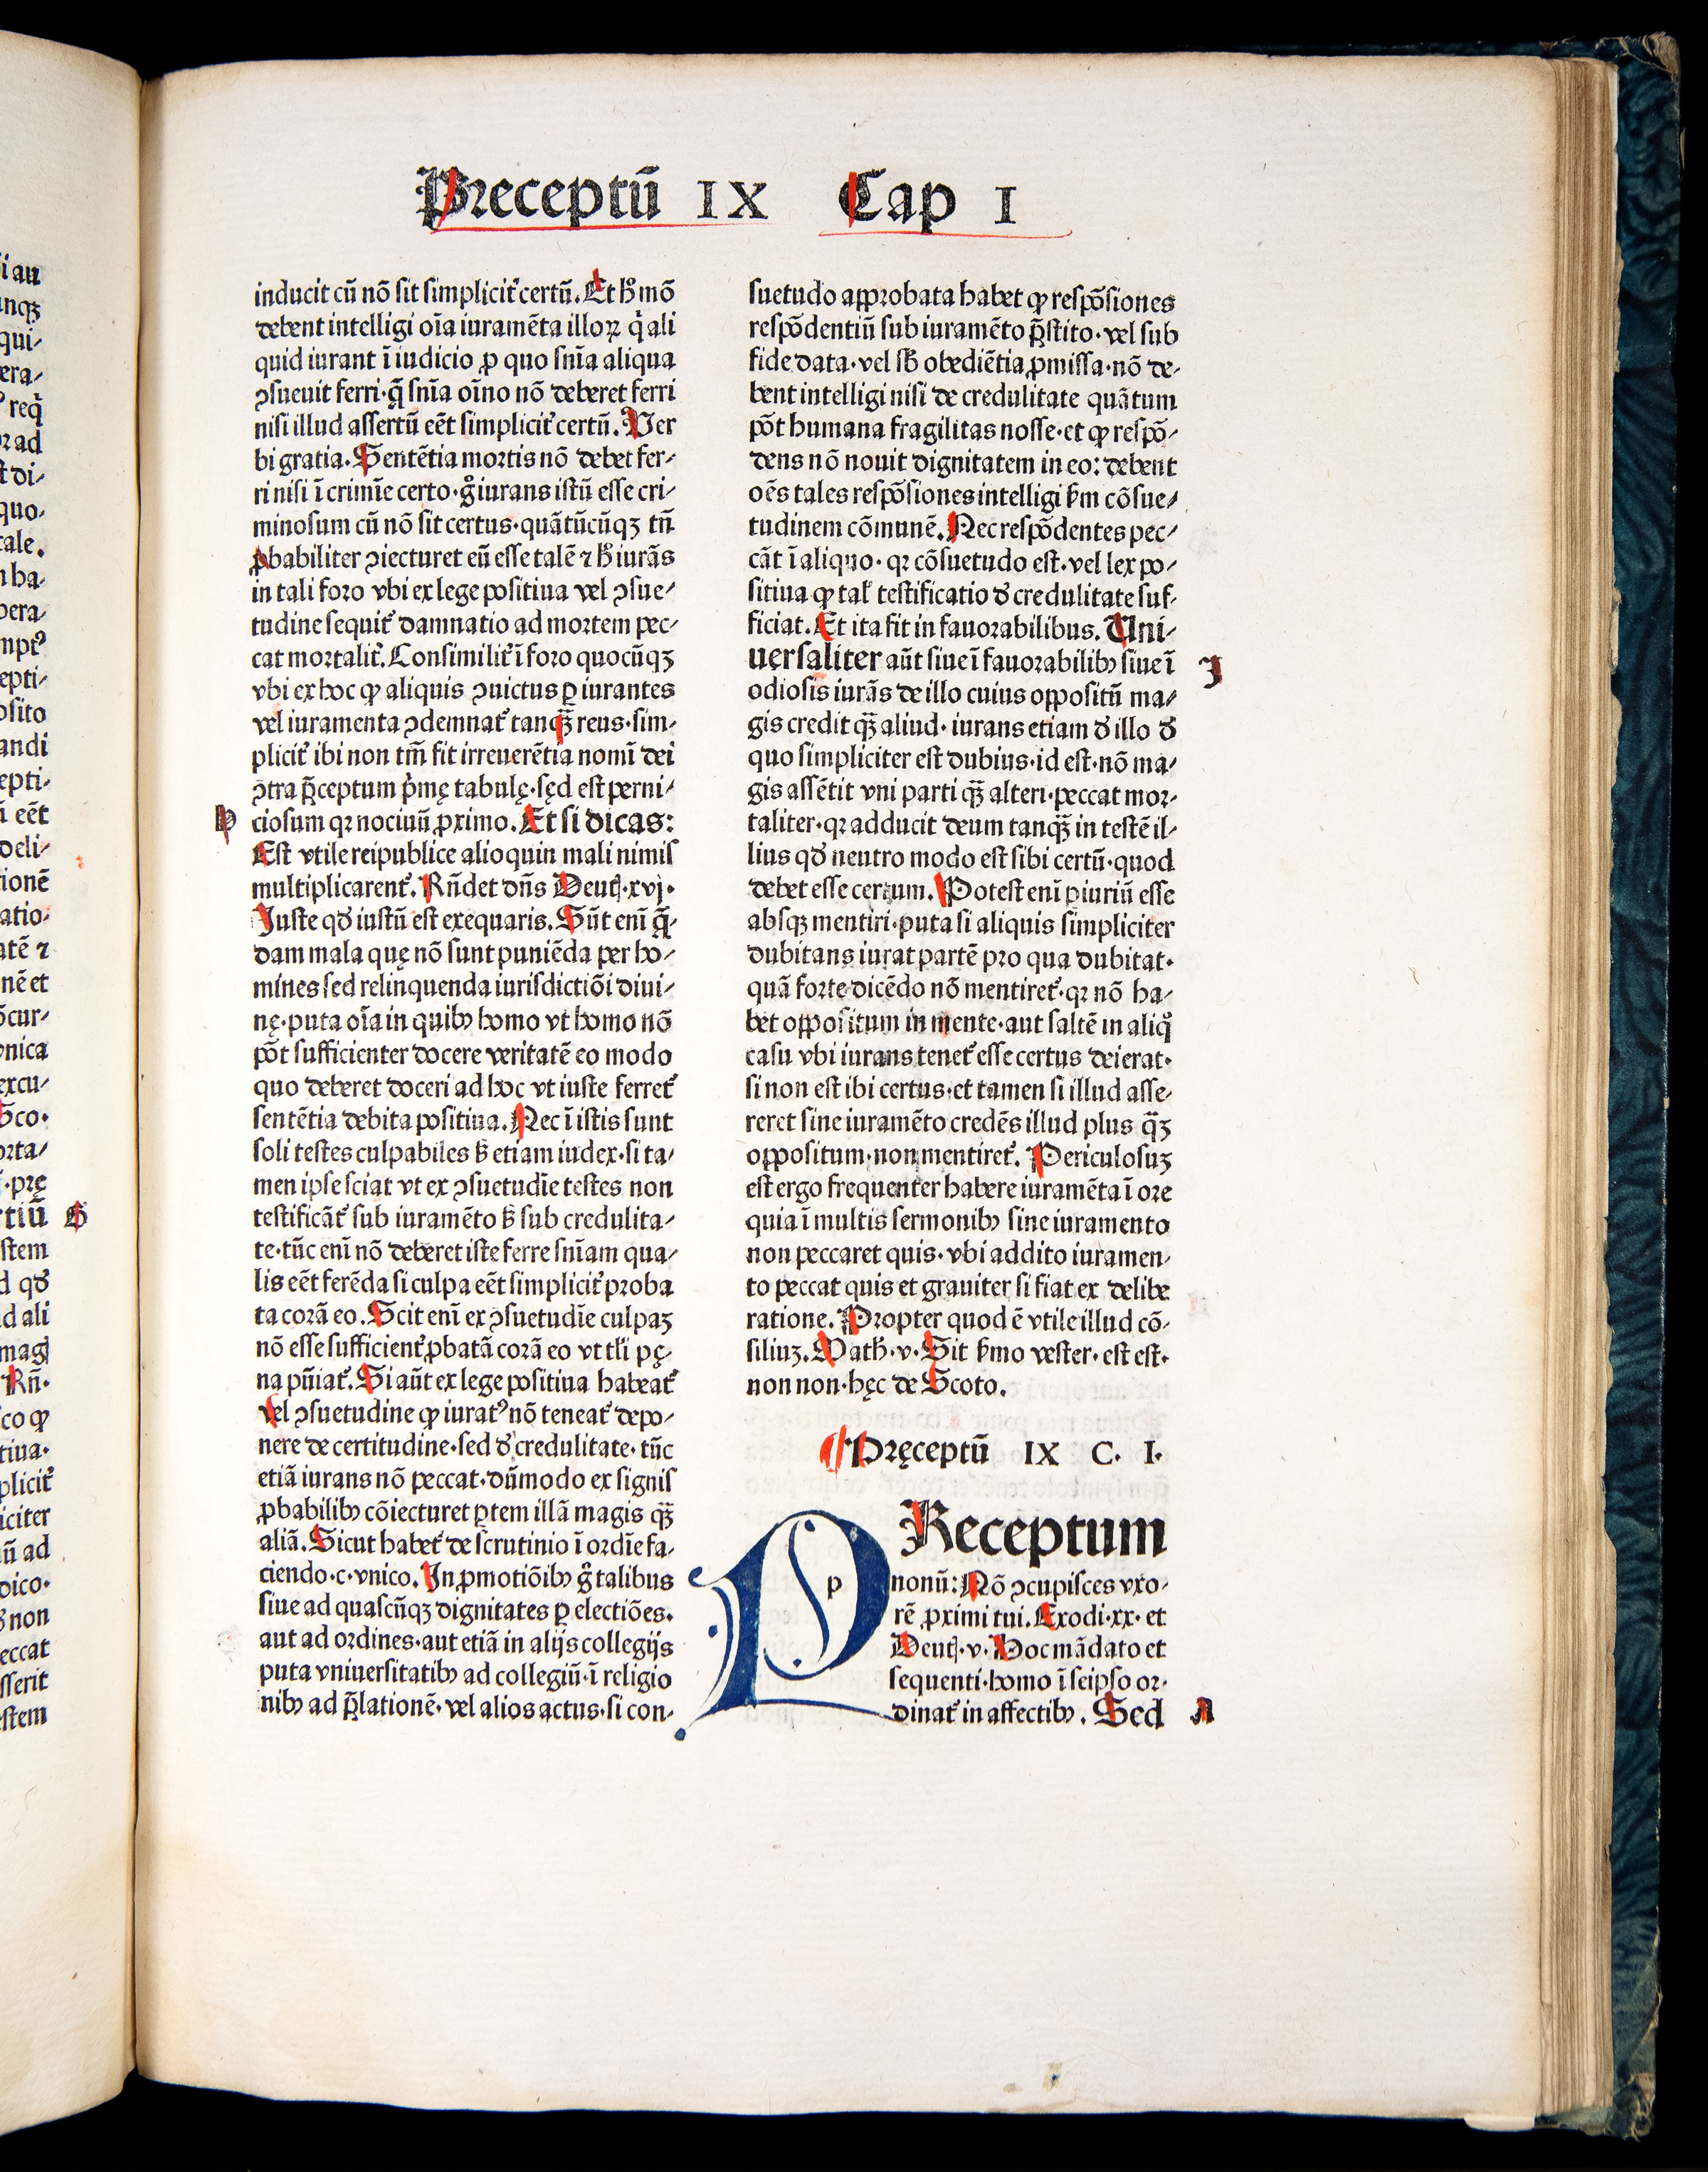 Preceptū IX Cap I
inducit cū nō sit simplicit᷑ certū. Et hͦ mō
debent intelligi oīa iuramēta illoꝝ q̇ ali
quid iurant ī iudicio ꝓ quo snīa aliqua
ꝯsueuit ferri· q̄ snīa oīno nō deberet ferri
nisi illud assertū eēt simplicit᷑ certū. Ver
bi gratia. Sentētia mortis nō debet fer⸗
ri nisi ī crimīe certo· gͦ iurans istū esse cri⸗
minosum cū nō sit certus· quātūcūqꝫ tn̄
ꝓbabiliter ꝯiecturet eū esse talē ⁊ hͦ iurās
in tali foro vbi ex lege positiua vel ꝯsue⸗
tudine sequit᷑ damnatio ad mortem pec⸗
cat mortalit᷑. Consimilit᷑ ī foro quocūqꝫ
vbi ex hoc ꝙ aliquis ꝯuictus ꝑ iurantes
vel iuramenta ꝯdemnat᷑ tanq̄ꝫ reus· sim⸗
plicit᷑ ibi non tm̄ fit irreuerētia nomī dei
ꝯtra p̄ceptum p̄mę tabulę· sęd est perni⸗
ciosum qꝛ nociuū ꝓximo. Et si dicas:
Est vtile reipublice alioquin mali nimis
multiplicarent᷑. Rn̄det dn̄s Deut̉· xvj·
Juste qđ iustū est exequaris. Sūt enī q̄⸗
dam mala quę nō sunt puniēda per ho⸗
mines sed relinquenda iurisdictiōi diui⸗
nę· puta oīa in quibꝰ homo vt homo nō
pōt sufficienter docere veritatē eo modo
quo deberet doceri ad hoc vt iuste ferret᷑
sentētia debita positiua. Nec ī istis sunt
soli testes culpabiles sꝫ etiam iudex· si ta⸗
men ipse sciat vt ex ꝯsuetudīe testes non
testificāt᷑ sub iuramēto sꝫ sub credulita⸗
te· tūc enī nō deberet iste ferre snīam qua⸗
lis eēt ferēda si culpa eēt simplicit᷑ proba
ta corā eo. Scit enī ex ꝯsuetudīe culpaꝫ
nō esse sufficient᷑ ꝓbatā corā eo vt tlī pę⸗
na pūiat᷑. Si aūt ex lege positiua habeat᷑
vel ꝯsuetudine ꝙ iuratꝰ nō teneat᷑ depo⸗
nere de certitudine· sed đ credulitate· tūc
etiā iurans nō peccat· dūmodo ex signis
ꝓbabilibꝰ cōiecturet ꝑtem illā magis q̄ꝫ
aliā. Sicut habet᷑ de scrutinio ī ordīe fa⸗
ciendo· c· vnico. In ꝓmotiōibꝰ gͦ talibus
siue ad quascūqꝫ dignitates ꝑ electiōes.
aut ad ordines· aut etiā in alijs collegijs
puta vniuersitatibꝰ ad collegiū· ī religio
nibꝰ ad p̄lationē· vel alios actus· si con⸗
H
suetudo approbata habet ꝙ respōsiones
respōdentiū sub iuramēto p̄stito· vel sub
fide data· vel sb̄ obediētia ꝓmissa· nō de⸗
bent intelligi nisi de credulitate quātum
pōt humana fragilitas nosse· et ꝙ respō⸗
dens nō nouit dignitatem in eo: debent
oēs tales respōsiones intelligi ẜm cōsue⸗
tudinem cōmunē. Nec respōdentes pec⸗
cāt ī aliquo· qꝛ cōsuetudo est· vel lex po⸗
sitiua ꝙ tal̄ testificatio đ credulitate suf⸗
ficiat. Et ita fit in fauorabilibus. Uni⸗
uersaliter aūt siue ī fauorabilibꝰ siue ī
odiosis iurās de illo cuius oppositū ma⸗
gis credit q̄ꝫ aliud· iurans etiam đ illo đ
quo simpliciter est dubius· id est· nō ma⸗
gis assētit vni parti q̄ꝫ alteri· peccat mor⸗
taliter· qꝛ adducit deum tanq̄ꝫ in testē il⸗
lius qđ neutro modo est sibi certū· quod
debet esse certum. Potest enī ꝑiuriū esse
absqꝫ mentiri· puta si aliquis simpliciter
dubitans iurat partē pro qua dubitat·
quā forte dicēdo nō mentiret᷑· qꝛ nō ha⸗
bet oppositum in mente· aut saltē in aliqͦ
casu vbi iurans tenet᷑ esse certus deierat·
si non est ibi certus· et tamen si illud asse⸗
reret sine iuramēto credēs illud plus q̄ꝫ
oppositum· non mentiret᷑. Periculosuꝫ
est ergo frequenter habere iuramēta ī ore
quia ī multis sermonibꝰ sine iuramento
non peccaret quis· vbi addito iuramen⸗
to peccat quis et grauiter si fiat ex delibe
ratione. Propter quod ē vtile illud cō⸗
siliuꝫ. Math̄· v· Sit ẜmo vester· est est·
non non· hęc de Scoto.
J
Pręceptū IX C. I.
PReceptum
nonū: Nō ꝯcupisces vxo⸗
rē ꝓximi tui. Exodi· xx· et
Deut̉· v· Hoc mādato et
sequenti· homo ī seipso or⸗
dinat᷑ in affectibꝰ. Sed
A